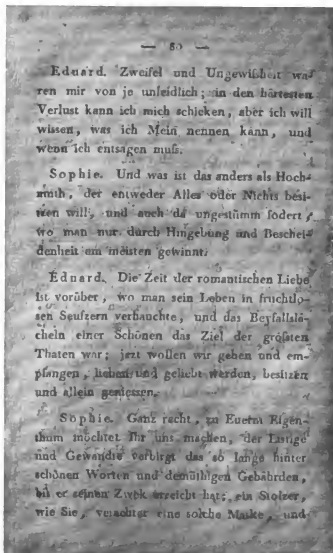 — 80 —
Eduard. Zweifel und Ungewißheit wa-
ren mir von je unleidlich; in den härtesten
Verlust kann ich mich schicken, aber ich will
wissen, was ich Mein nennen kann, und
wenn ich entsagen muß.
Sophie. Und was ist das anders als Hoch-
muth, der entweder Alles oder Nichts besi-
tzen will, und auch da ungestümm fodert,
wo man nur durch Hingebung und Beschei-
denheit am meisten gewinnt.
Eduard. Die Zeit der romantischen Liebe
ist vorüber, wo man sein Leben in fruchtlo-
sen Seufzern verhauchte, und das Beyfallslä-
cheln einer Schönen das Ziel der größten
Thaten war; jezt wollen wir geben und em-
pfangen, lieben und geliebt werden, besitzen
und allein geniessen.
Sophie. Ganz recht, zu Euerm Eigen-
thum möchtet Ihr uns machen, der Listige
und Gewandte verbirgt das so lange hinter
schönen Worten und demüthigen Gebährden,
bis er seinen Zwek erreicht hat; ein Stolzer,
wie Sie, verachtet eine solche Maske, und